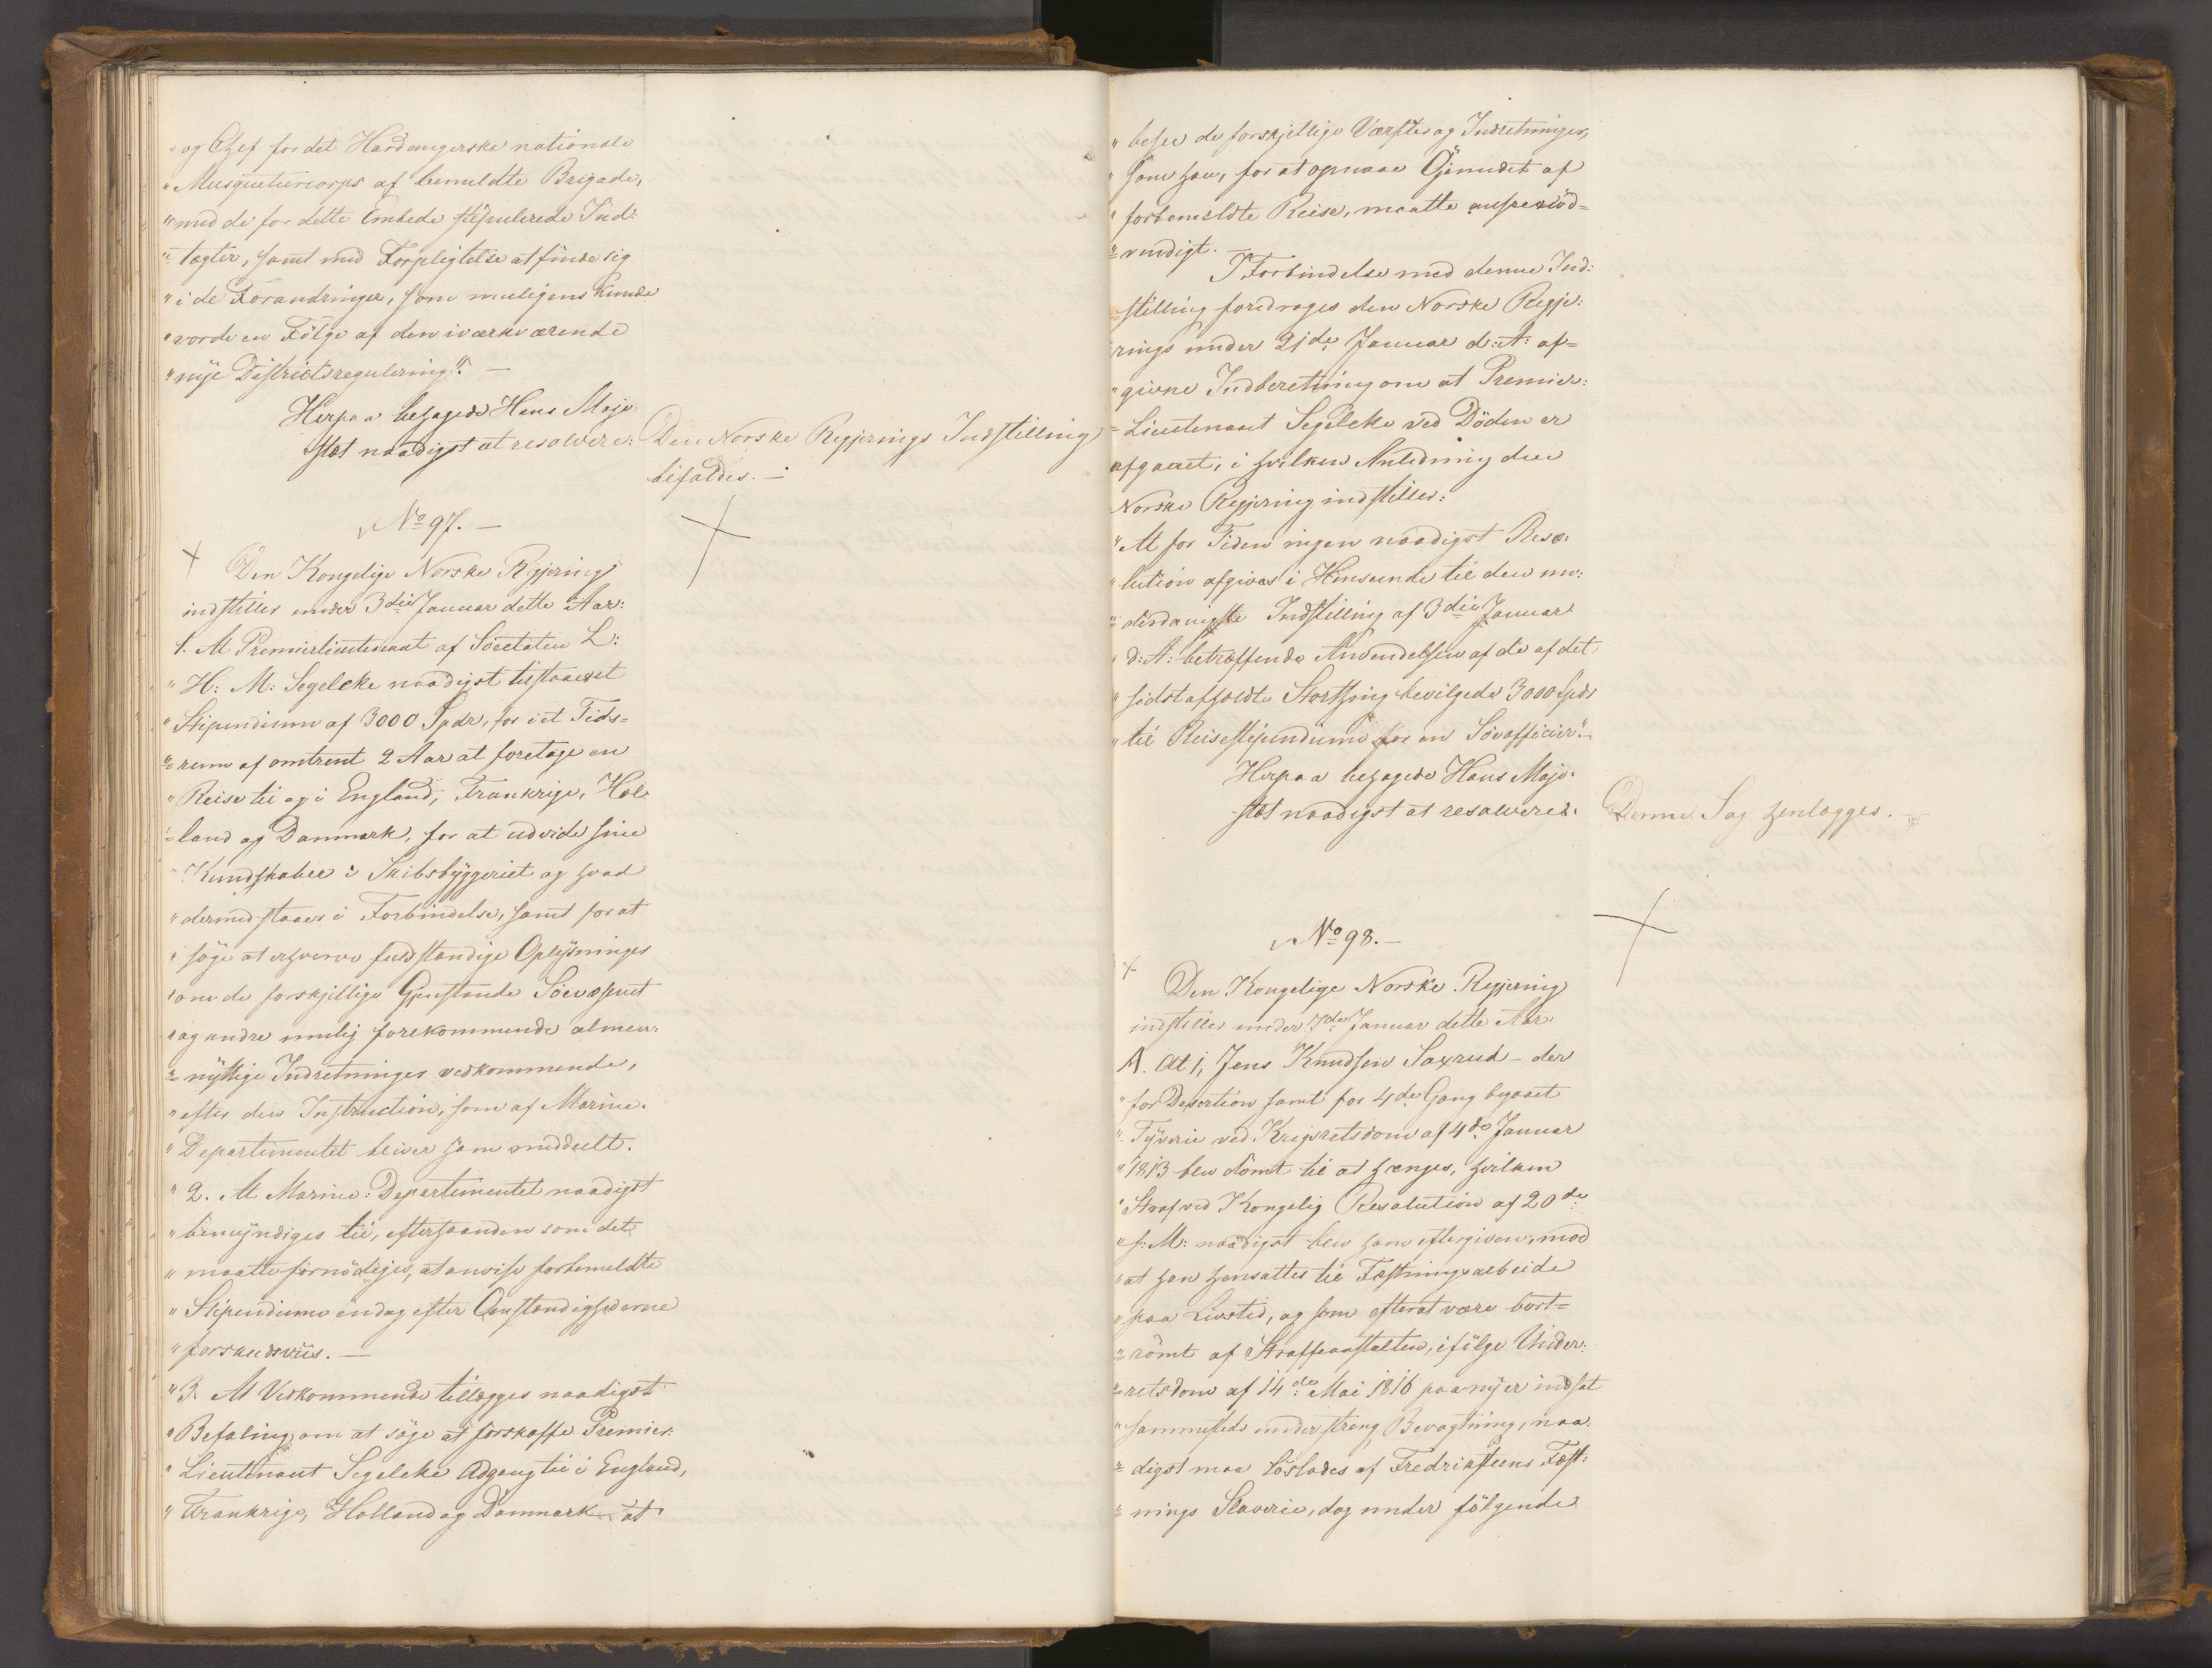 "og Chef for det Hardangerske nationale
"Musqueteercorps af bemeldte Brigade,
"med de for dette Embede stipulerede Ind:
"tægter, samt med Forpligtelse at finde sig
"i de Forandringer, som muligens kunde
"vorde en Fölge af den iværkværende
"nÿe Districtsregulering". —
Herpaa behagede Hans Maje
stæt naadigst at resolvere: Den Norske Regjerings Indstilling
bifaldes. —
No 97. —
Den Kongelige Norske Regjering
indstiller under 3die Januar dette Aar:
1. At Premierlieutenant af Söeetaten L:
"H: M: Segelcke naadigst tilstaaes et
"Stipendium af 3000 Spdr, for i et Tids=
"rum af omtrent 2 Aar at foretage en
"Reise til og i England, Frankrige, Hol=
"land og Danmark, for at udvide sine
"Kundskaber i Skibsbÿggeriet og hvad
"dermed staaer i Forbindelse, samt for at
"söge at erhverve fuldstændige Oplÿsninger
"om de forskjellige Gjenstande Söevæsenet
"og andre mulig forekommende almeen:
"nÿttige Indretninger vedkommende,
"efter den Instruction, som af Marine=
"Departementet bliver ham meddeelt.
"2. At Marine: Departementet naadigst
"bemÿndiges til, efterhaanden som det
"maatte fornödiges, at anvise forbemeldte
"Stipendium endog efter Omstændighederne
"forskudsviis. —
"3. At Vedkommende tillægges naadigst
"Befaling om at söge at forskaffe Premier:
"Lieutenant Segelcke Adgang til i England,
"Frankrige, Holland og Danmark at
"besee de forskjellige Værfter og Indretninger,
"som han, for at opnaae Öiemedet af
"forbemeldte Reise, maatte ansee nöd=
"vendigt. —
I Forbindelse med denne Ind:
stilling foredroges den Norske Regje:
rings under 21de Januar d: A: af=
givne Indberetning om at Premier:
Lieutenant Segelcke ved Döden er
afgaaet, i hvilken Anledning den
Norske Regjering indstiller:
"At for Tiden ingen naadigst Reso:
"lution afgives i Henseende til den un:
"derdanigste Indstilling af 3die Januar
"d: A: betræffende Anvendelsen af de af det
"sidst afholdte Storthing bevilgede 3000 Spdr
"til Reisestipendium for en Söeofficier". —
Herpaa behagede Hans Maje:
stæt naadigst at resolvere: Denne Sag henlægges. —
No 98. —
Den Kongelige Norske Regjering
indstiller under 7de Januar dette Aar:
A. At 1, Jens Knudsen Saxrud - der
"for Desertion samt for 4de Gang begaaet
"Tÿverie ved Krigsretsdom af 4de Januar
"1813 blev dömt til at hænges, hvilken
"Straf ved Kongelig Resolution af 20de
"s: M: naadigst blev ham eftergiven, mod
"at han hensattes til Fæstningsarbeide
"paa Livstid, og som efterat være bort=
"römt af Straffeanstalten, ifölge Under:
"retsdom af 14de Mai 1816 paa nÿ er indsat
"sammesteds under streng Bevogtning, naa:
"digst maa löslades af Fredriksteens Fæst:
"nings Slaverie, dog under fölgende